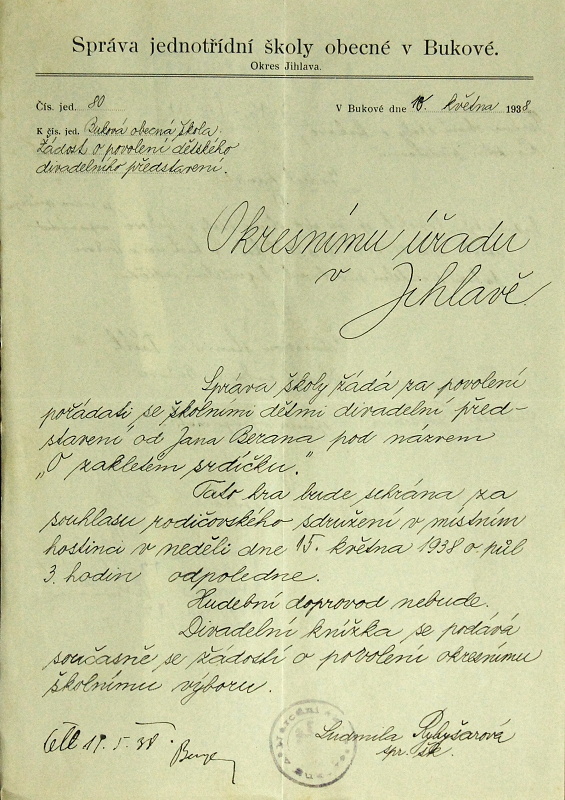 Správa jednotřídní školy obecné v Bukové.
Okres Jihlava.
Čís. jed. 80
V Bukové dne 10. května 1938
K čís. jed. Buková obecná škola:
Žádost o povolení dětského
divadelního představení.
Okresnímu úřadu
v
Jihlavě.
Správa školy žádá za povolení
pořádati se školními dětmi divadelní před-
stavení od Jana Berana pod názvem
„O zakletém srdíčku."
Tato hra bude sehrána za
souhlasu rodičovského sdružení v místním
hostinci v neděli dne 15. května 1938 o půl
3. hodin odpoledne.
Hudební doprovod nebude.
Divadelní knížka se podává
současně se žádostí o povolení okresnímu
školnímu výboru.
Ludmila
spr. šk.